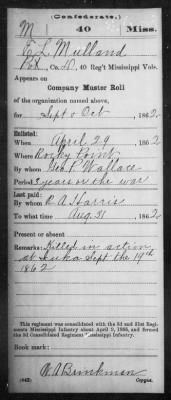 (Confederate.)
M 40 Miss.
E L Mulland
Pvt, Co. D, 40 Reg't Mississippi Vols.
Appears on
Company Muster Roll
of the organization named above,
for Sept & Oct, 1862
Enlisted:
When April 29, 1862
Where Rocky Point
By whom Geo. P. Wallace
Period 3 years or the war
Last paid:
By whom R A Harris
To what time Aug. 31, 1862
Present or absent
Remarks: Killed in action
at Iuka Sept the 19th
1862
This regiment was consolidated with the 3d and 31st Regi-
ments Mississippi Infantry about April 9, 1865, and formed
the 3d Consolidated Regiment Mississippi Infantry.
Book mark:
W. A. Brinkman
(642) Copyist.